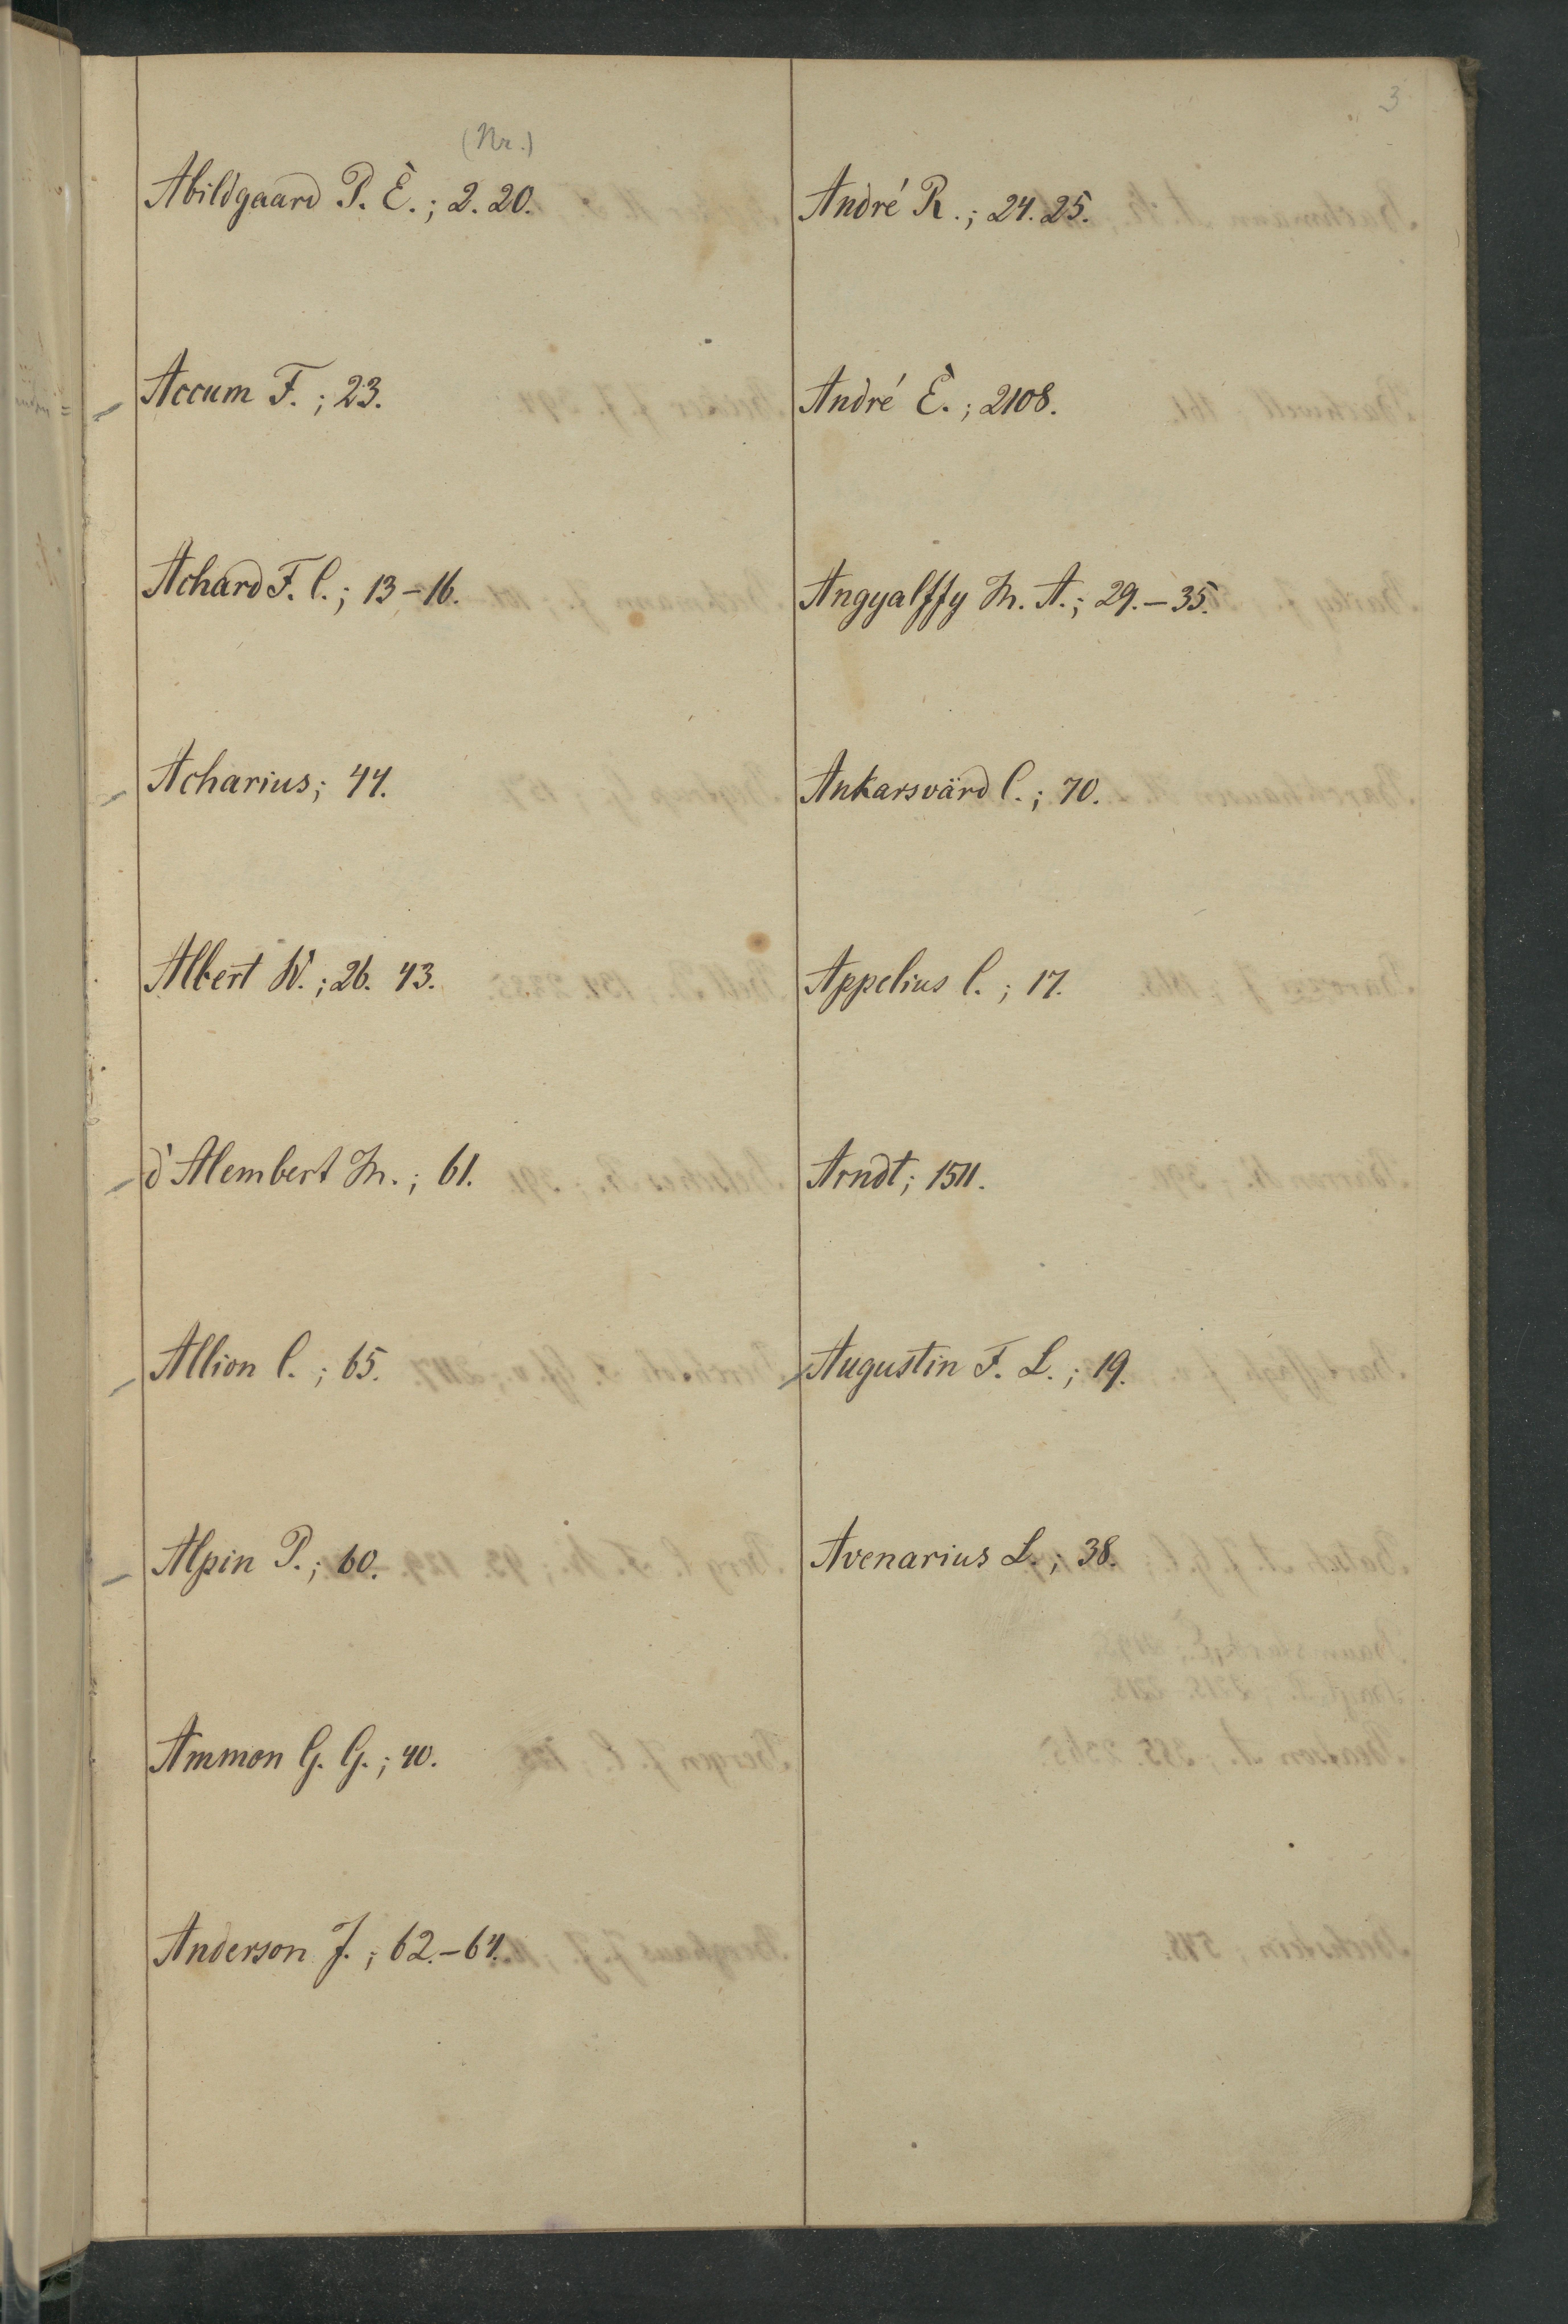 3
(Nr.)
Abildgaard P. E.; 2. 20.
Accum F.; 23.
Achard F. C.; 13–16.
Acharius; 44.
Albert W.; 26. 43.
d'Alembert M.; 61.
Allion C.; 65.
Alpin P.; 60.
Ammon G. G.; 40.
Anderson J.; 62.–64.
André R.; 24. 25.
André E.; 2108.
Angyalffy M. A.; 29.–35.
Ankarsvärd C.; 70.
Appelius C.; 17.
Arndt; 1511.
Augustin F. L.; 19.
Avenarius L.; 38.